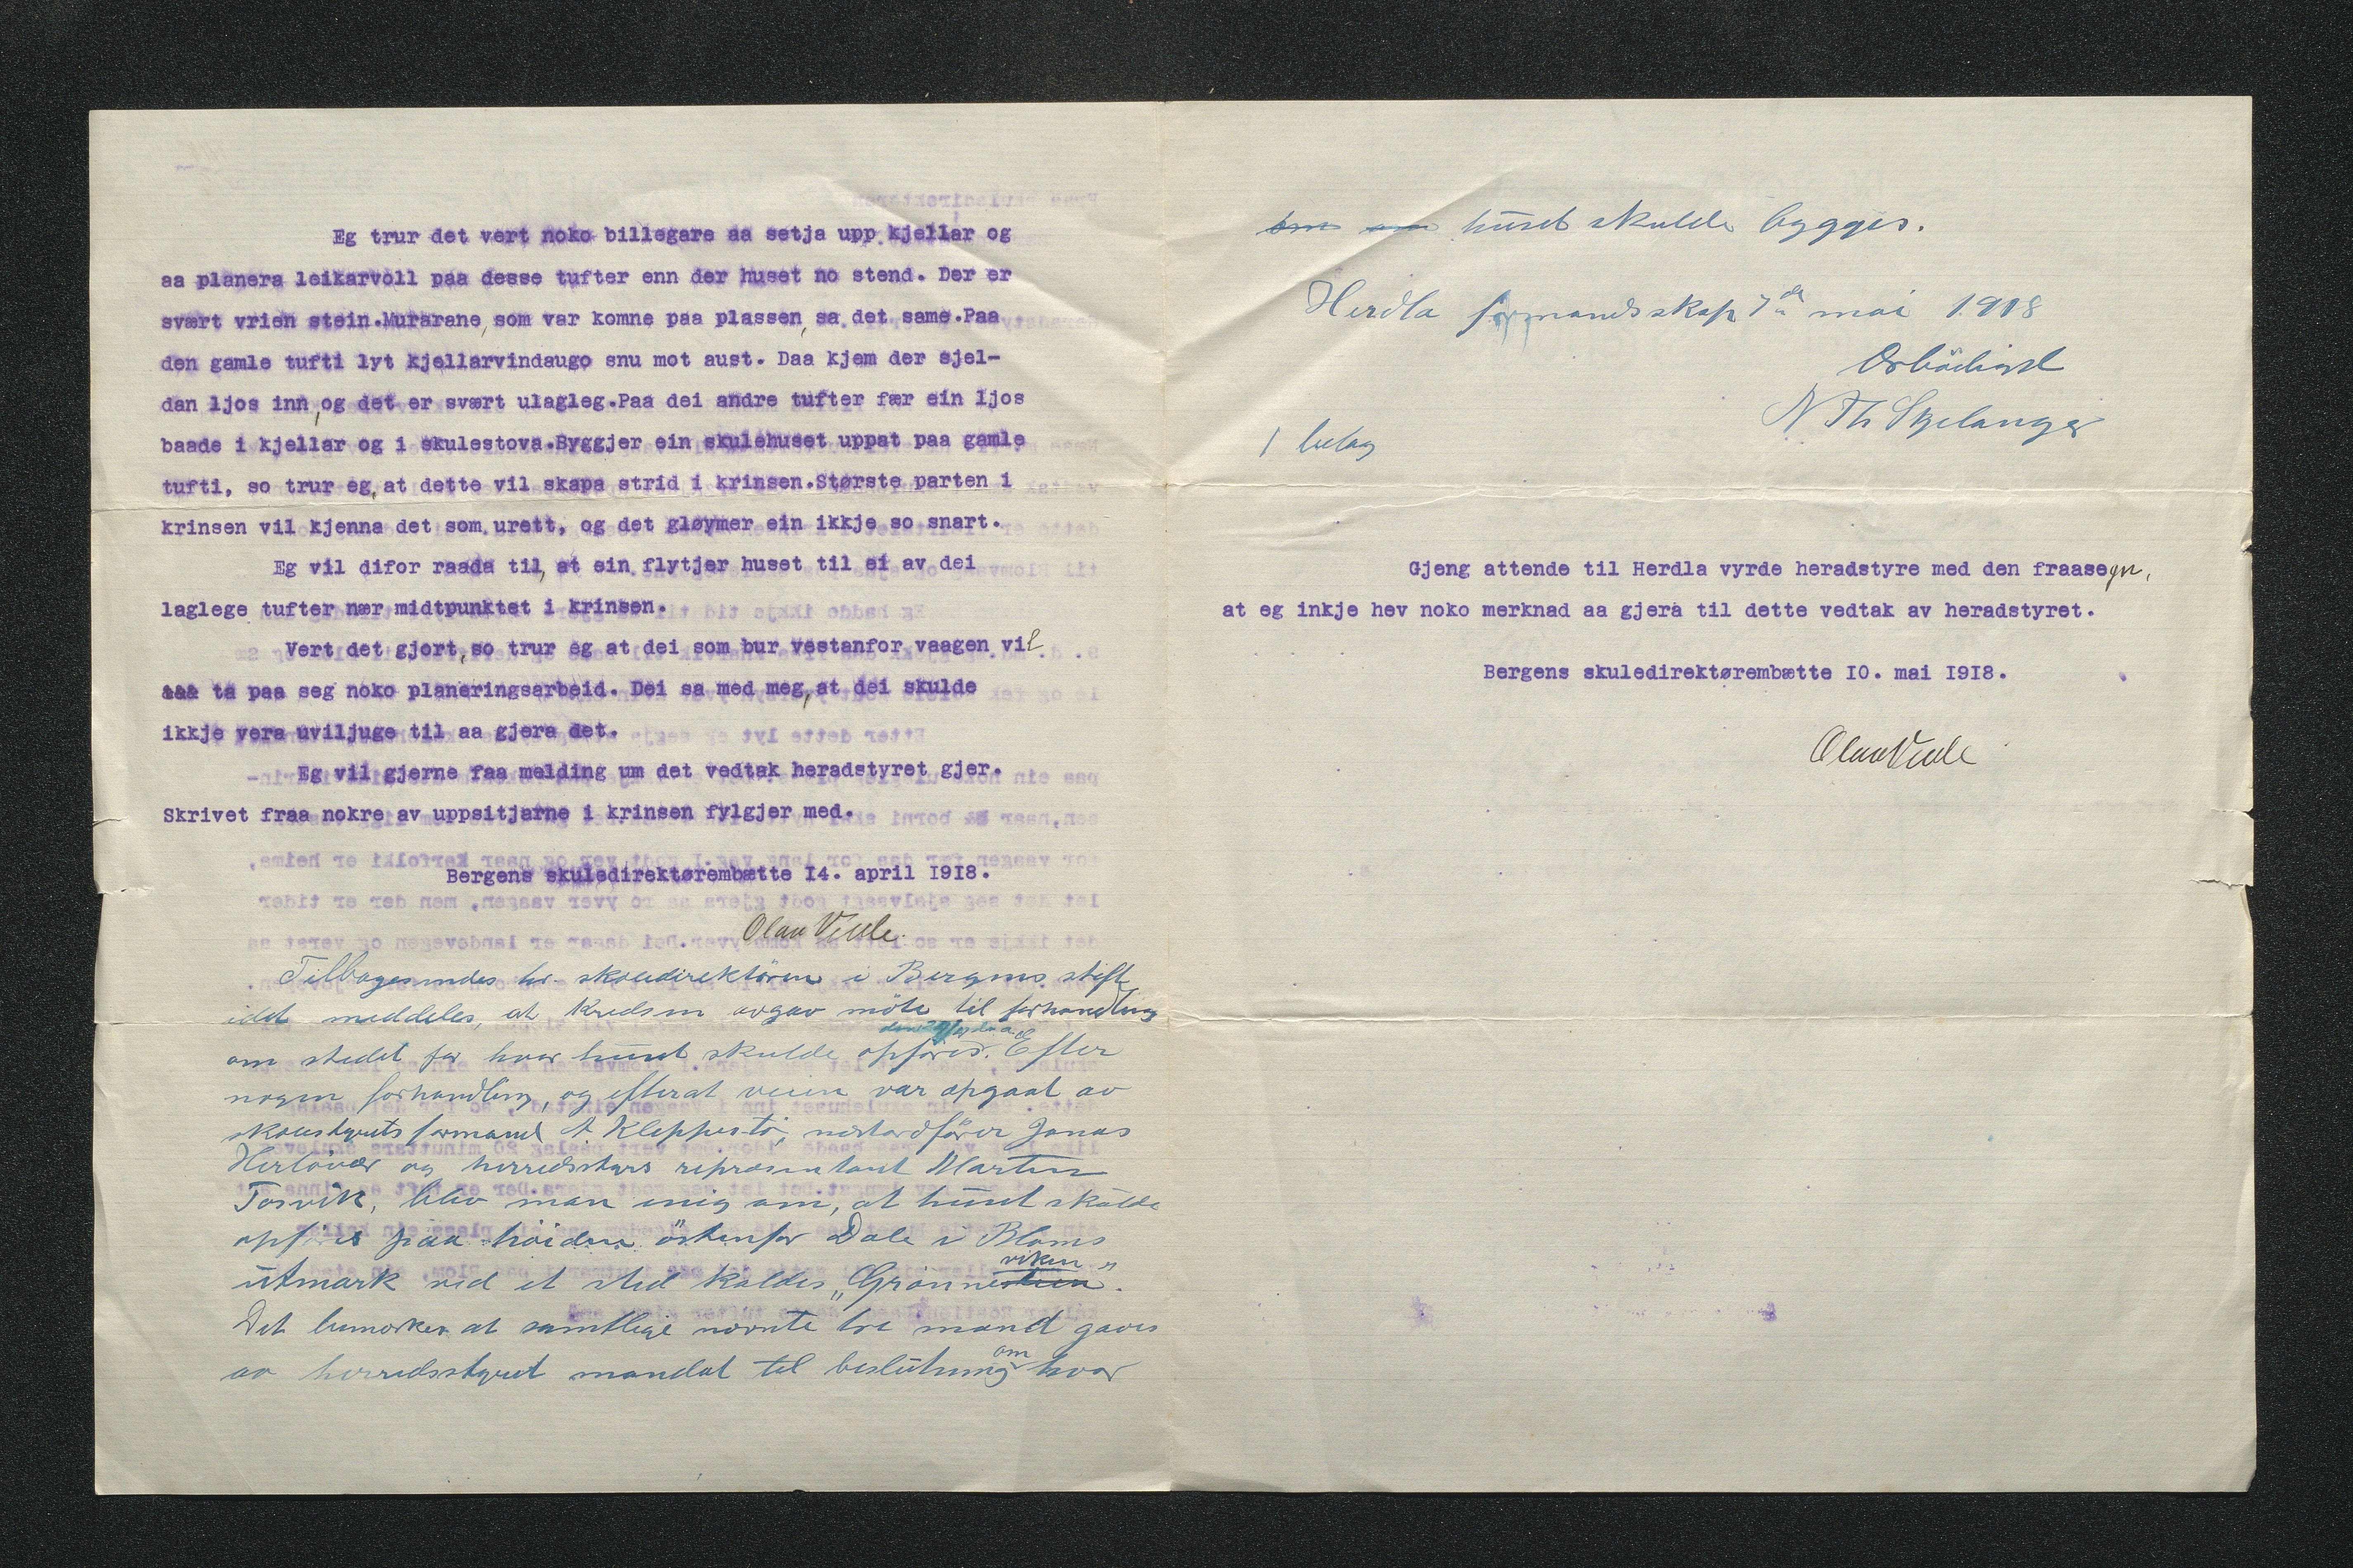 Eg trur det vert noko billegare aa setja upp kjellar og
aa planera leikarvoll paa desse tufter enn der huset no stend. Der er
svært vrien stein.Murarane, som var komne paa plassen, sa det same.Paa
den gamle tufti lyt kjellarvindaugo snu mot aust. Daa kjem der sjel-
dan ljos inn, og det er svært ulagleg.Paa dei andre tufter fær ein ljos
baade i kjellar og i skulestova.Byggjer ein skulehuset uppat paa gamle
tufti, so trur eg, at dette vil skapa strid i krinsen.Største parten i
krinsen vil kjenna det som urett, og det gløymer ein ikkje so snart.
Eg vil difor raada til, at ein flytjer huset til ei av dei
laglege tufter nær midtpunktet i krinsen.
Vert det gjort, so trur eg at dei som bur vestanfor vaagen vil
ta paa seg noko planeringsarbeid. Dei sa med meg, at dei skulde
ikkje vera uviljuge til aa gjera det.
Eg vil gjerne faa melding um det vedtak heradstyret gjer.
Skrivet fraa nokre av uppsitjarne i krinsen fylgjer med.
Bergens skuledirektørembætte 14. april 1918.
Olav Veule.
Tilbagesendes hr. skoledirektören i Bergens stift
idet meddeles, at kredsen avgav möte til forhandling
om stedet for hvor huset skulde opföres. Efter
nogen forhandling, og efterat veien var opgaat av
skolestyrets formand A. Kleppestö, Jonas
Herlöver og herredsstyrs repræsentant Martin
Torsvik, blev man enig om, at huset skulde
opföres paa höiden östenfor Dale i Bloms
utmark ved et sted kaldes „Grönneviken".
Det bemerkes at samtlige nævnte tre mænd gaves
av herredsstyret mandat til beslutning om hvor
om huset skulde bygges.
Herdla formandsskap 7de mai 1918
Ærbödigst
N. Th Skjelanger
1 bilag
Gjeng attende til Herdla vyrde heradstyre med den fraasegn,
at eg inkje hev noko merknad aa gjera til dette vedtak av heradstyret.
Bergens skuledirektørembætte 10. mai 1918.
Olav Veule